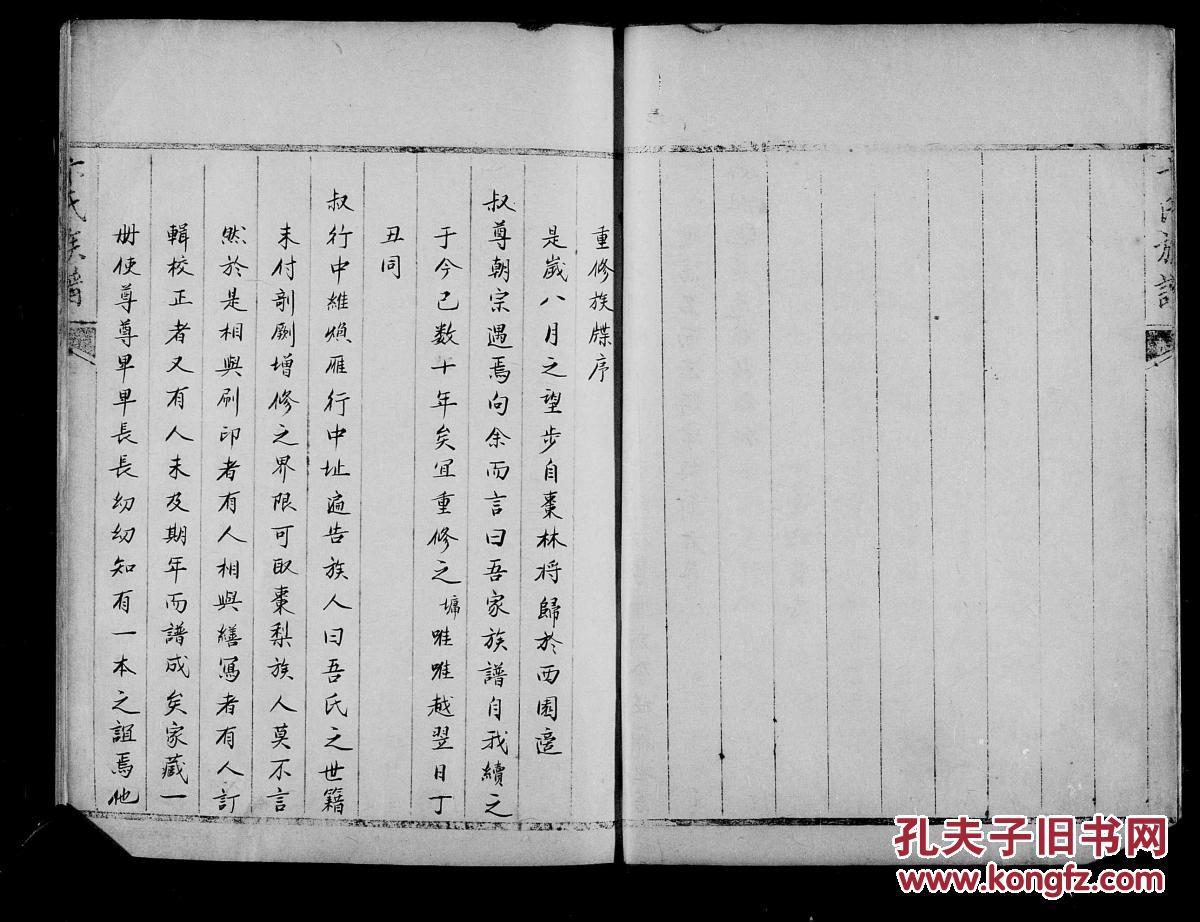 重修族牒序
是嵗八月之望步自棗林將歸於西園
叔尊朝宗遇焉向余而言曰吾家族譜自我續之
于今已数十年矣宜重修之墉唯唯越翌日丁
丑同
叔行中維煩雁行中址遍告族人曰吾氏之世籍
未付剞劂增修之界限可取棗梨族人莫不言
然於是相與刷印者有人相與繕寫者有人訂
輯校正者又有人未及期年而譜成矣家藏一
毋使尊尊卑卑長長幼幼知有一本之誼焉他
卞氏族譜
氏族譜
孔夫子旧书网
www.kongfz.com